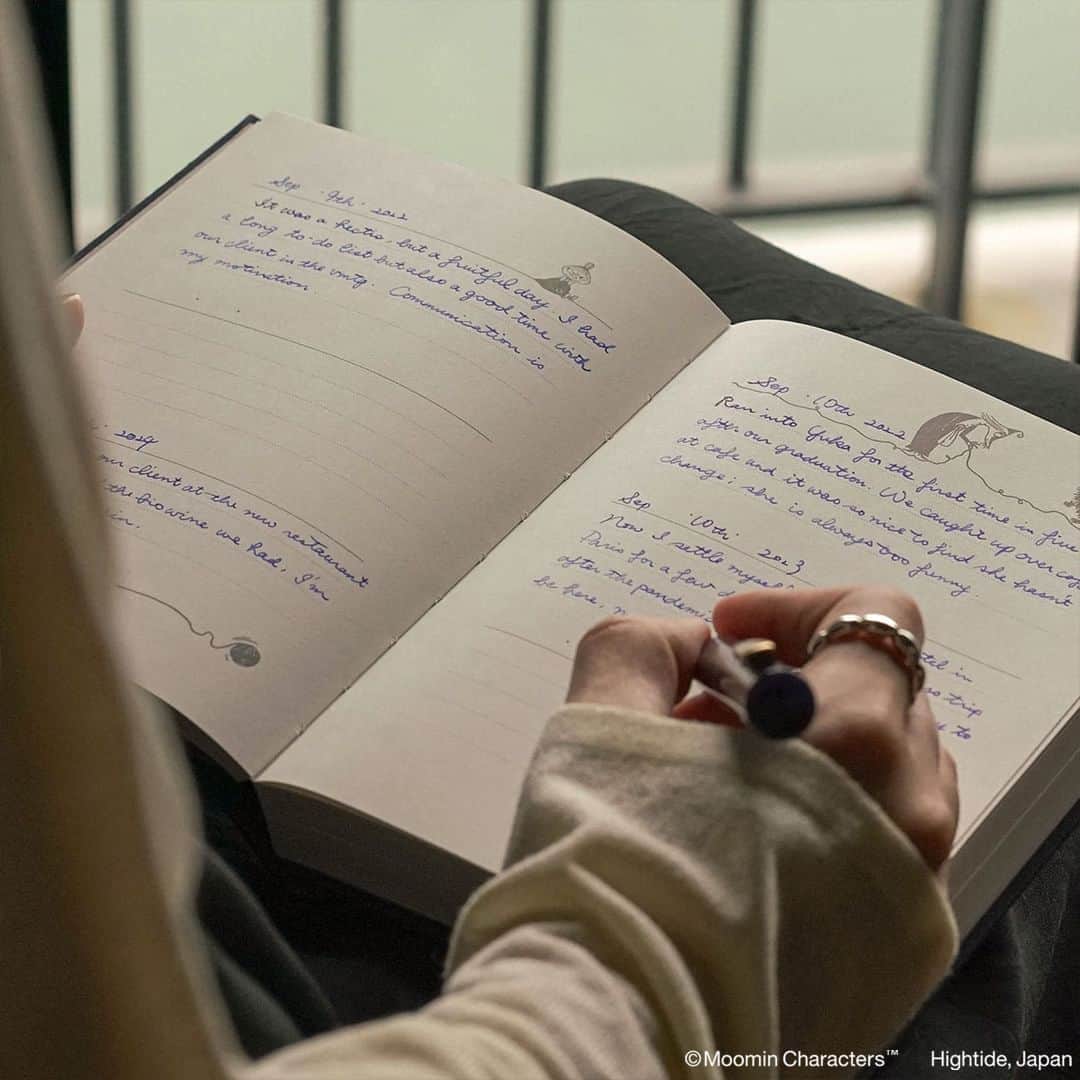 Sep. 9th. 2022
It was a hectic, but a fruitful day. I had
a long to-do list but also a good time with
our client in the mtg. Communication is
my motivation
. 2024
our client at the new restaurant
the bio wine we had. I'm
in.
Sep. 10th 2022
Ran into Yuka for the first time in five
after our graduation. We caught up over
at cafe and it was so nice to find she hasn't
change; she is always too funny.
Sep. 10th. 2023
Now I settle myself
Paris for a few
after the pandemic
be here,
in
trip
to
©Moomin Characters™ Hightide, Japan